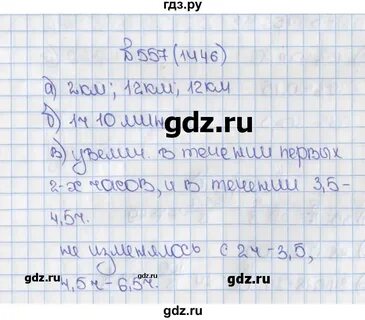 гдз.ру
В 557 (1446)
а) 2км; 12км; 12км
б) 1ч 10 мин
gdz.ru
в) увелич. в течении первых
2-х часов, и в течении 3,5-
4,5ч.
не изменялось с 2ч-3,5,
gdz.ru
gdz.ru
4,5ч-6,5ч.
gdz.ru